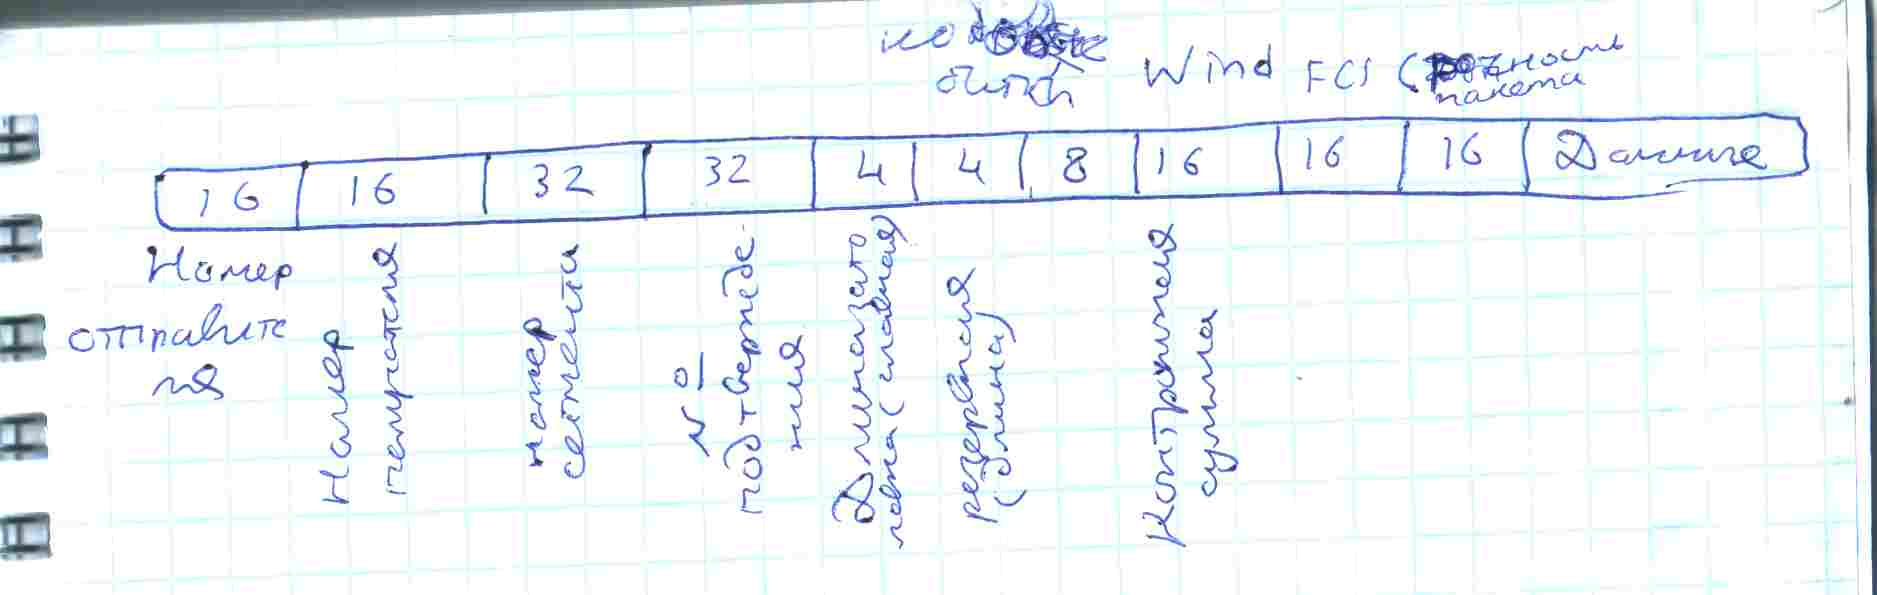 биты
Wind FCS (
пакета
16 16 32 32 4 4 8 16 16 16 Данные
Номер
отправите
ля
Номер
получателя
номер
сегмента
№
подтвержде-
ния
Длина заго
ловка (главная)
резервная
(длина)
Контрольная
сумма